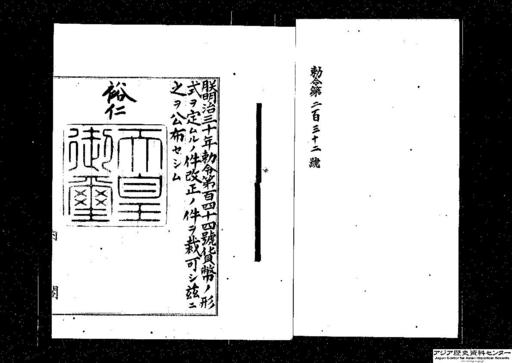 勅令第二百三十二號
朕明治三十年勅令第百四十四號貨幣ノ形
式ヲ定ムルノ件改正ノ件ヲ裁可シ茲ニ
之ヲ公布セシム
裕仁
天皇
御璽
内閣
アジア歴史資料センター
Japan Center for Asian Historical Records